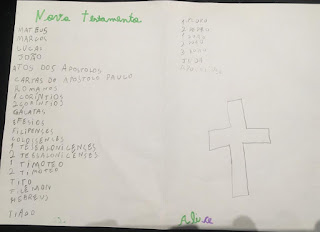 Novo Testamento
MATEUS
MARCOS
LUCAS
JOÃO
ATOS DOS APOSTOLOS
CARTAS DO APOSTOLO PAULO
ROMANOS
1 CORINTIOS
2 CORINTIOS
GALATAS
EFESIOS
FILIPENCES
COLOSSENCES
1 TESSALONICENCES
2 TESSALONICENSES
1 TIMOTEO
2 TIMOTEO
TITO
FILEMON
HEBREUS
TIAGO
1 PEDRO
2 PEDRO
1 JOÃO
2 JOÃO
3 JOÃO
JUDA